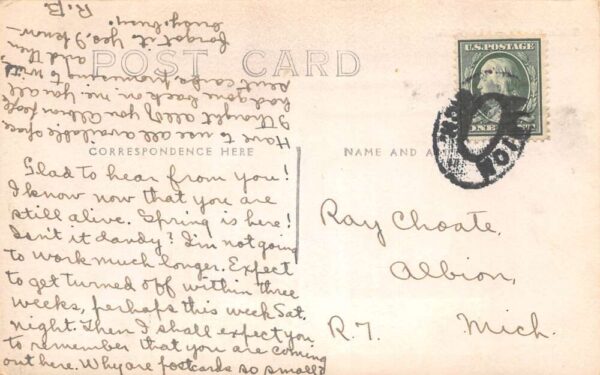 POST CARD
U.S. POSTAGE
CORRESPONDENCE HERE
NAME AND
Glad to hear from you!
I know now that you are
still alive. Spring is here!
Isn't it dandy? I'm not going
to work much longer. Expect
to get turned off within three
weeks, perhaps this week Sat.
night. Then I shall expect you
to remember that you are coming
out here. Why are postcards so small?
Have to use all available space.
I thought all of you Albion people
had gone back on me. You all
sent cards, promising to write
and then
forgot it. Yes, I know-
R. B.
Ray Choate,
Albion,
R. 7. Mich.